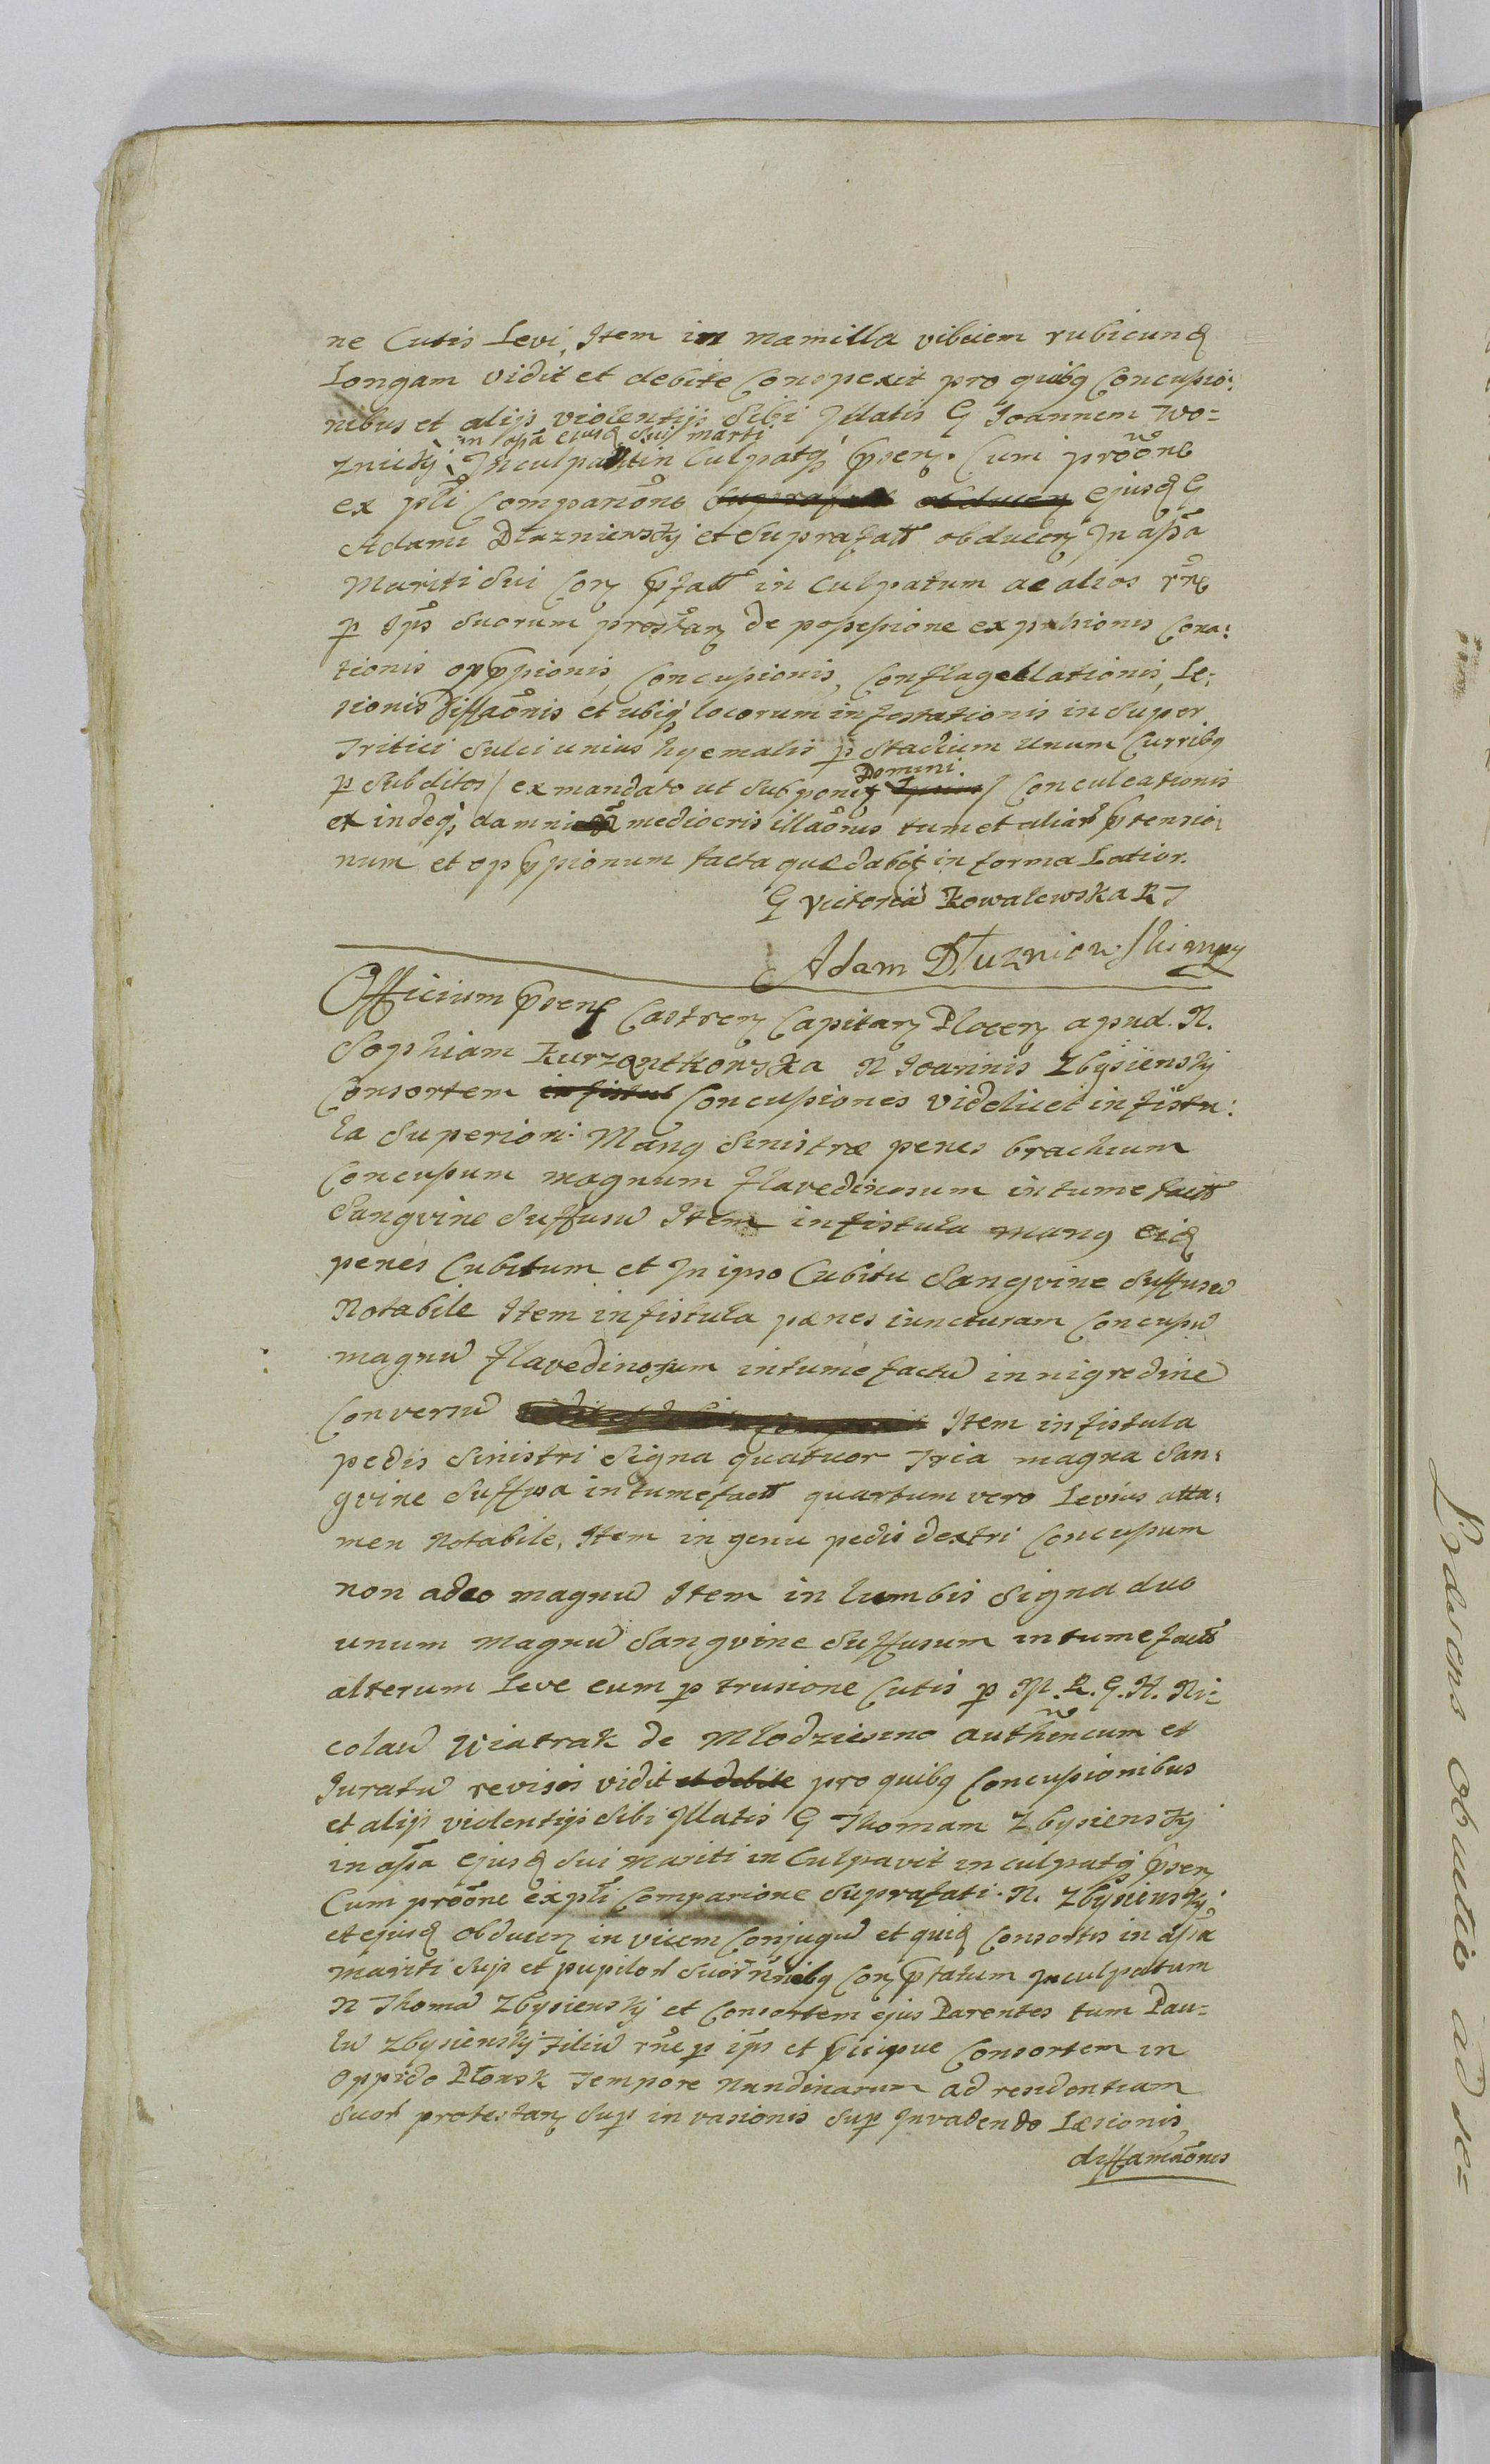 ne Cutis Levi, Item in mamilla vibicem rubicunđ
Longam vidit et debite Conspexit pro quibq Concussio:
nibus et alijs violentijs Sibi Jllatis G Joannem Wo=
in asã ejusđ Sui mariti
znickij Jnculpavit in Culpatq prsen. Cum proõne
ex pti Comparione ejusđ G
Adami Dłuzniewskij et Suprafatt obducen Jn assã
Mariti Sui Con prfatt in Culpatum ac alios rne
p Ips suorum protan de possessione expulsionis Cona:
tionis oppssionis, Concussionis, Conflagellationis, Le:
sionis Diffaõnis et ubiq locorum infestationis in Super
Tritici Sulci unius hyemalis p Stadium unum Curribq
Domini
p Subditos / ex mandato ut Subponit / Conculcationis
et indeq damni mediocris illaõnis tum et aliar prtensio:
num et oppssionum facta quæ dabit in forma Latior.
G Victoria Kowalewska R T
Adam Dłuzniewski mpp
Officium prsens Castren Capitan Plocen apud. N.
Sophiam Kurzątkowska N Joannis Zbysienskj
Consortem in fistul Concussiones videlicet in fistu:
la Superiori Manq Sinistræ penes brachium
Concussum magnum flavedinosum intumefactt
Sangvine Suffusu Item in fistula manq eiđ
penes Cubitum et Jn ipso Cubitu Sangvine Suffusu
Notabile Item in fistula pænes iuncturam Concussu
magnu flavedinosum intumefactu in nigredine
Conversu Item in fistula
pedis Sinistri Signa quatuor Tria magna San:
gvine Suffusa intumefactt quartum vero Levius atta:
men Notabile, Item in genu pedis dextri Concussum
non adeo magnu Item in lumbis Signa duo
unum magnu Sangvine Suffusum intumefactt
alterum Leve cum p trusione Cutis p M. R. G. N. Ni:
colau Wiatrak de Mlodziesino authencum et
Juratu revisis vidit et debite pro quibq Concussionibus
et alijs violentijs Sibi Jllatis G Thomam Zbysienskj
in assã ejusđ Sui mariti in Culpavit in culpatq prsen
Cum proõne ex pti Comparione Suprafati N. Zbysienskj
et ejusđ obducen in vicem Conjugu et quiđ Consortis in assã
mariti Sui et pupilor Suor nnibq Con prfatum Jnculpatum
N Thoma Zbysienskj et Consortem ejus Parentes tum Pau=
lu Zbysienskj Filiu rne p ips et pricipue Consortem in
Oppido Płonsk Tempore Nundinarum ad residentiam
Suor protestan Sup invasionis Sup Jnvadendo Læsionis
diffamaõnis